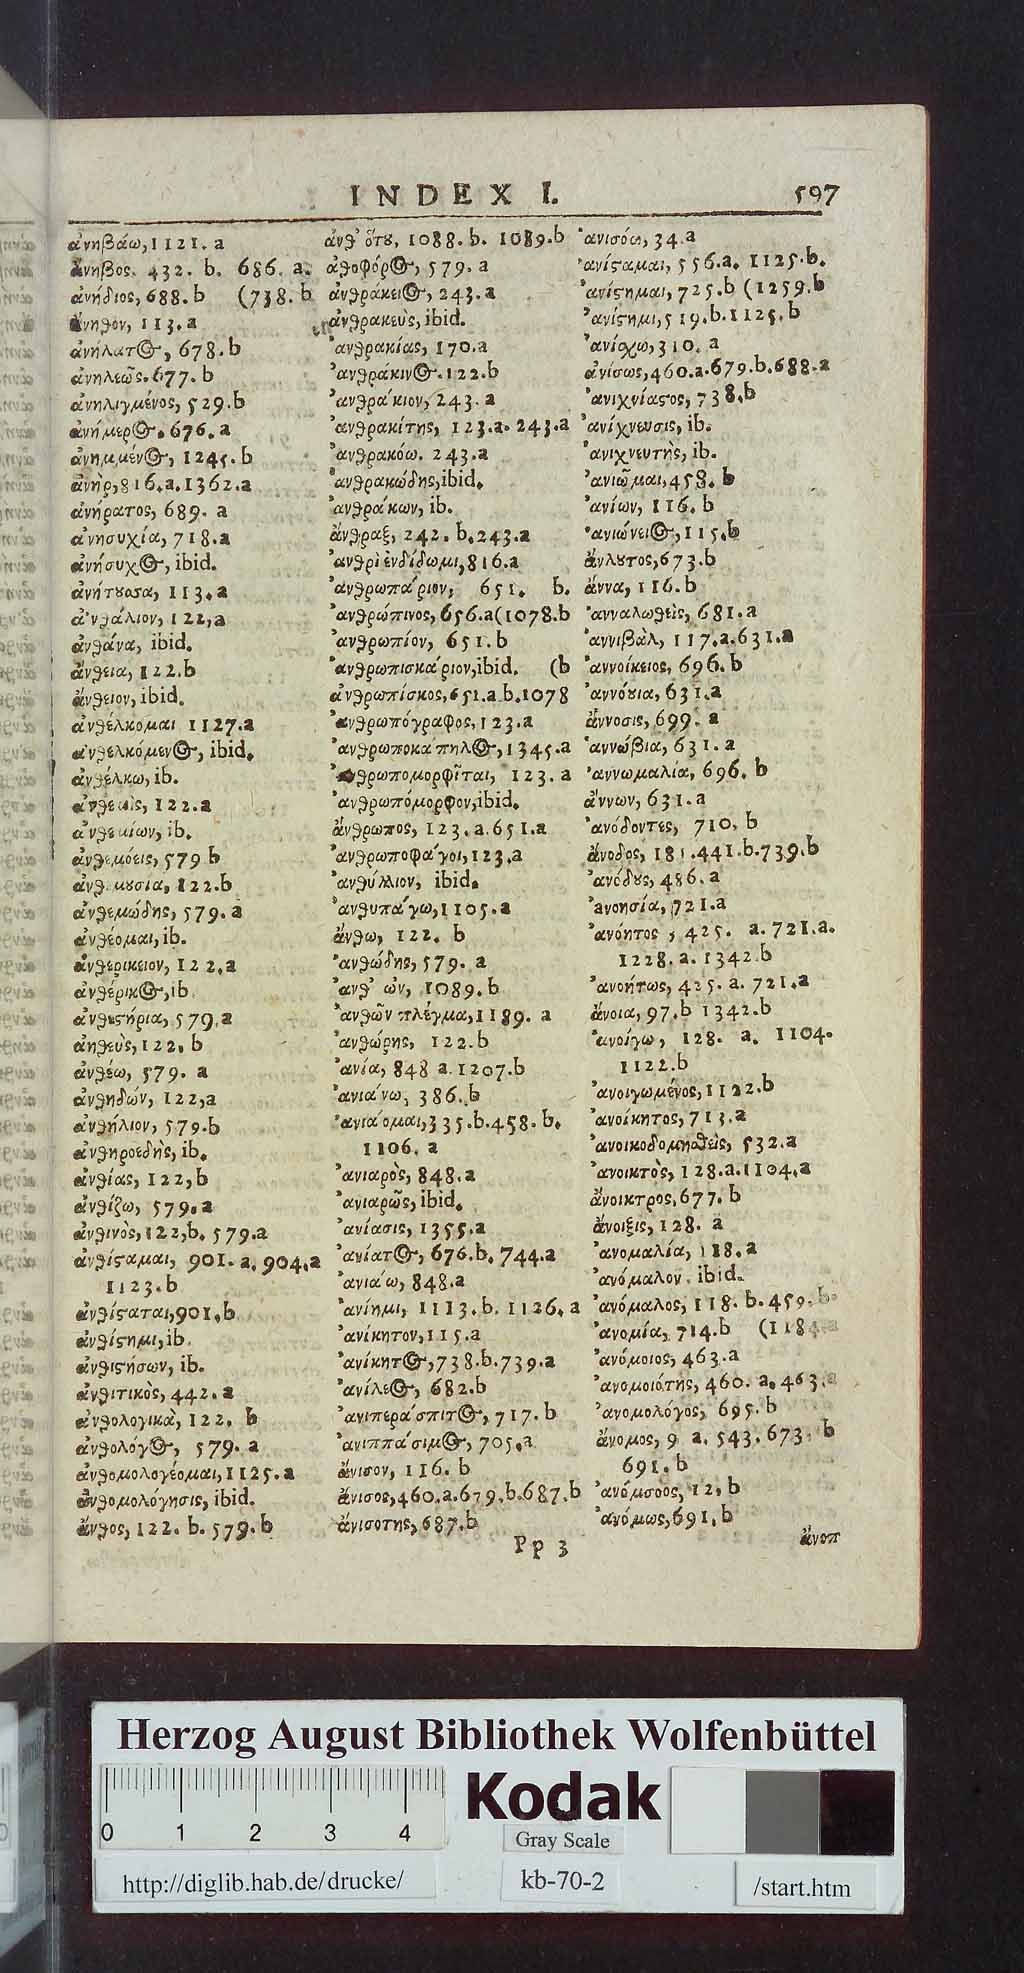 INDEX I. 597
ἀνηβάω, 1121. a
ἄνηβος. 432. b. 686. a.
ἀνήδιος, 688. b (738. b
ἄνηθον, 113. a
ἀνήλατος, 678. b
ἀνηλεῶς. 677. b
ἀνηλιγμένος, 529. b
ἀνήμερος. 676. a
ἀνημμένος, 1245. b
ἀνὴρ, 816. a. 1362. a
ἀνήρατος, 689. a
ἀνησυχία, 718. a
ἀνήσυχος, ibid.
ἀνήτουσα, 113. a
ἀνθάλιον, 122, a
ἀνθάνα, ibid.
ἄνθεια, 122. b
ἄνθειον, ibid.
ἀνθέλκομαι 1127. a
ἀνθελκόμενος, ibid.
ἀνθέλκω, ib.
ἀνθεμὶς, 122. a
ἀνθεμίων, ib.
ἀνθεμόεις, 579 b
ἀνθεμουσία, 122. b
ἀνθεμώδης, 579. a
ἀνθέομαι, ib.
ἀνθερίκειον, 122. a
ἀνθέρικος, ib.
ἀνθεστήρια, 579. a
ἀηθεὺς, 122. b
ἀνθέω, 579. a
ἀνθηδών, 122, a
ἀνθήλιον, 579. b
ἀνθηροεδὴς, ib.
ἀνθίας, 122, b
ἀνθίζω, 579. a
ἀνθινὸς, 122, b. 579. a
ἀνθίσταμαι, 901. a. 904. a
1123. b
ἀνθίσταται, 901. b
ἀνθίστημι, ib.
ἀνθιστήσων, ib.
ἀνθιτικὸς, 442. a
ἀνθολογικὰ, 122. b
ἀνθολόγος, 579. a
ἀνθομολογέομαι, 1125. a
ἀνθομολόγησις, ibid.
ἄνθος, 122. b. 579. b
ἀνθ' ὅτου, 1088. b. 1089. b
ἀθοφόρος, 579. a
ἀνθράκειος, 243. a
ἀνθρακεὺς, ibid.
ἀνθρακίας, 170. a
ἀνθράκινος. 122. b
ἀνθράκιον, 243. a
ἀνθρακίτης, 123. a. 243. a
ἀνθρακόω. 243. a
ἀνθρακώδης, ibid.
ἀνθράκων, ib.
ἄνθραξ, 242. b. 243. a
ἀνθρὶ ἐνδίδωμι, 816. a
ἀνθρωπάριον, 651. b.
ἀνθρώπινος, 656. a (1078. b
ἀνθρωπίον, 651. b
ἀνθρωπισκάριον, ibid. (b
ἀνθρωπίσκος, 651. a. b. 1078
ἀνθρωπόγραφος, 123. a
ἀνθρωποκάπηλος, 1345. a
ἀνθρωπομορφῖται, 123. a
ἀνθρωπόμορφον, ibid.
ἄνθρωπος, 123. a. 651. a
ἀνθρωποφάγοι, 123. a
ἀνθύλλιον, ibid.
ἀνθυπάγω, 1105. a
ἄνθω, 122. b
ἀνθώδης, 579. a
ἀνθ' ὧν, 1089. b
ἀνθῶν πλέγμα, 1189. a
ἀνθώρης, 122. b
ἀνία, 848 a. 1207. b
ἀνιάνω, 386. b
ἀνιάομαι, 335. b. 458. b.
1106. a
ἀνιαρὸς, 848. a
ἀνιαρῶς, ibid.
ἀνίασις, 1355. a
ἀνίατος, 676. b. 744. a
ἀνιάω, 848. a
ἀνίημι, 1113. b. 1126. a
ἀνίκητον, 115. a
ἀνίκητος, 738. b. 739. a
ἀνίλεος, 682. b
ἀνιπεράσπιτος, 717. b
ἀνιππάσιμος, 705. a
ἄνισον, 116. b
ἄνισος, 460. a. 679. b. 687. b
ἄνισοτης, 687. b
ἀνισόω, 34. a
ἀνίσταμαι, 556. a. 1125. b.
ἀνίστημαι, 725. b (1259. b
ἀνίστημι, 519. b. 1125. b
ἀνίσχω, 310. a
ἀνίσως, 460. a. 679. b. 688. a
ἀνιχνίαστος, 738. b
ἀνίχνευσις, ib.
ἀνιχνευτὴς, ib.
ἀνιῶμαι, 458. b
ἀνίων, 116. b
ἀνιώνειος, 115. b
ἄνλυτος, 673. b
ἄννα, 116. b
ἀνναλωθεὶς, 681. a
ἀννιβὰλ, 117. a. 631. a
ἀννοίκειος, 696. b
ἀννόυια, 631. a
ἄννοσις, 699. a
ἀννώβια, 631. a
ἀννωμαλία, 696. b
ἄννων, 631. a
ἀνόδοντες, 710. b
ἄνοδος, 181. 441. b. 739. b
ἀνόδους, 486. a
ἀνοησία, 721. a
ἀνόητος, 425. a. 721. a.
1228. a. 1342 b
ἀνοήτως, 425. a. 721. a
ἄνοια, 97. b 1342. b
ἀνοίγω, 128. a. 1104.
1122. b
ἀνοιγωμένος, 1122. b
ἀνοίκητος, 713. a
ἀνοικοδομηθεὶς, 532. a
ἀνοικτὸς, 128. a. 1104. a
ἄνοικτρος, 677. b
ἄνοιξις, 128. a
ἀνομαλία, 118. a
ἀνόμαλον. ibid.
ἀνόμαλος, 118. b. 459. b.
ἀνομία, 714. b (1184. a
ἀνόμοιος, 463. a
ἀνομοιότης, 460. a. 463. a
ἀνομολόγος, 695. b
ἄνομος, 9 a. 543. 673. b
691. b
ἀνόμσοος, 12. b
ἀνόμως, 691. b
Pp 3 ἄνοπ
Herzog August Bibliothek Wolfenbüttel
0 1 2 3 4
Kodak
Gray Scale
http://diglib.hab.de/drucke/ kb-70-2 /start.htm